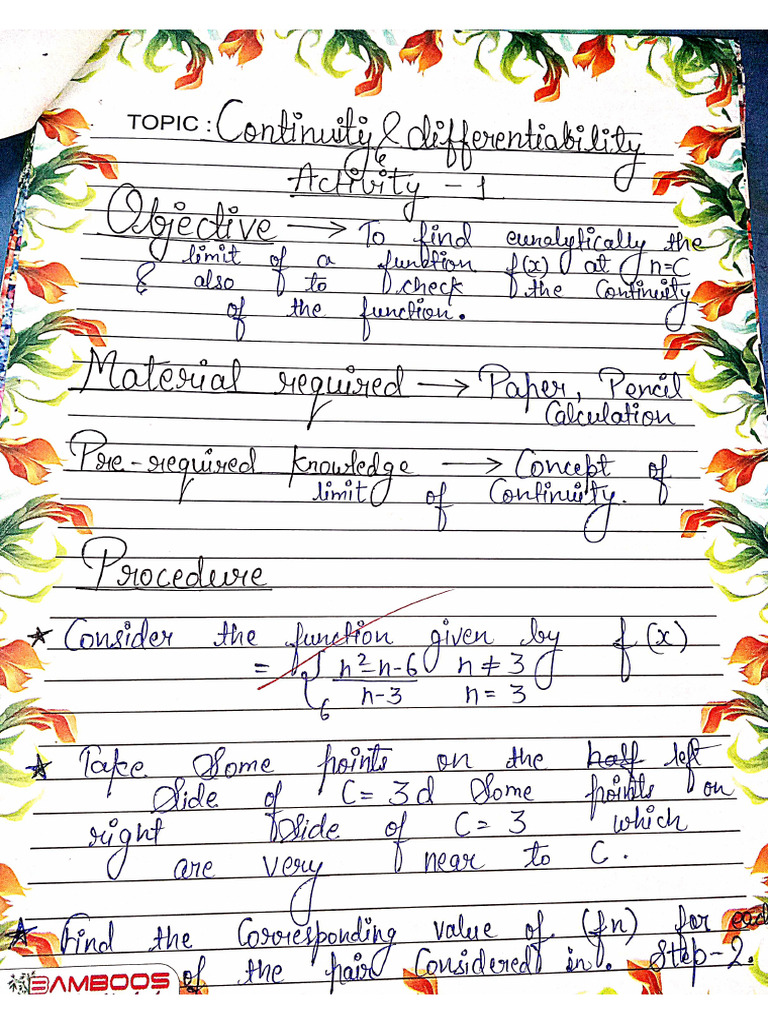 TOPIC : Continuity & differentiability
Activity - 1
Objective → To find eunalytically the
limit of a function f(x) at n=C
& also to check the Continuity
of the function.
Material required → Paper, Pencil
Calculation
Pre-required knowledge → Concept of
limit of Continuity.
Procedure
* Consider the function given by f(x)
= { n²-n-6 n ≠ 3
n-3 n = 3
6
* Take Some points on the half left
Side of C= 3d Some points on
right Side of C= 3 which
are very near to C.
* Find the Corresponding value of (fn) for each
of the pair Considered in. Step-2.
BAMBOOS